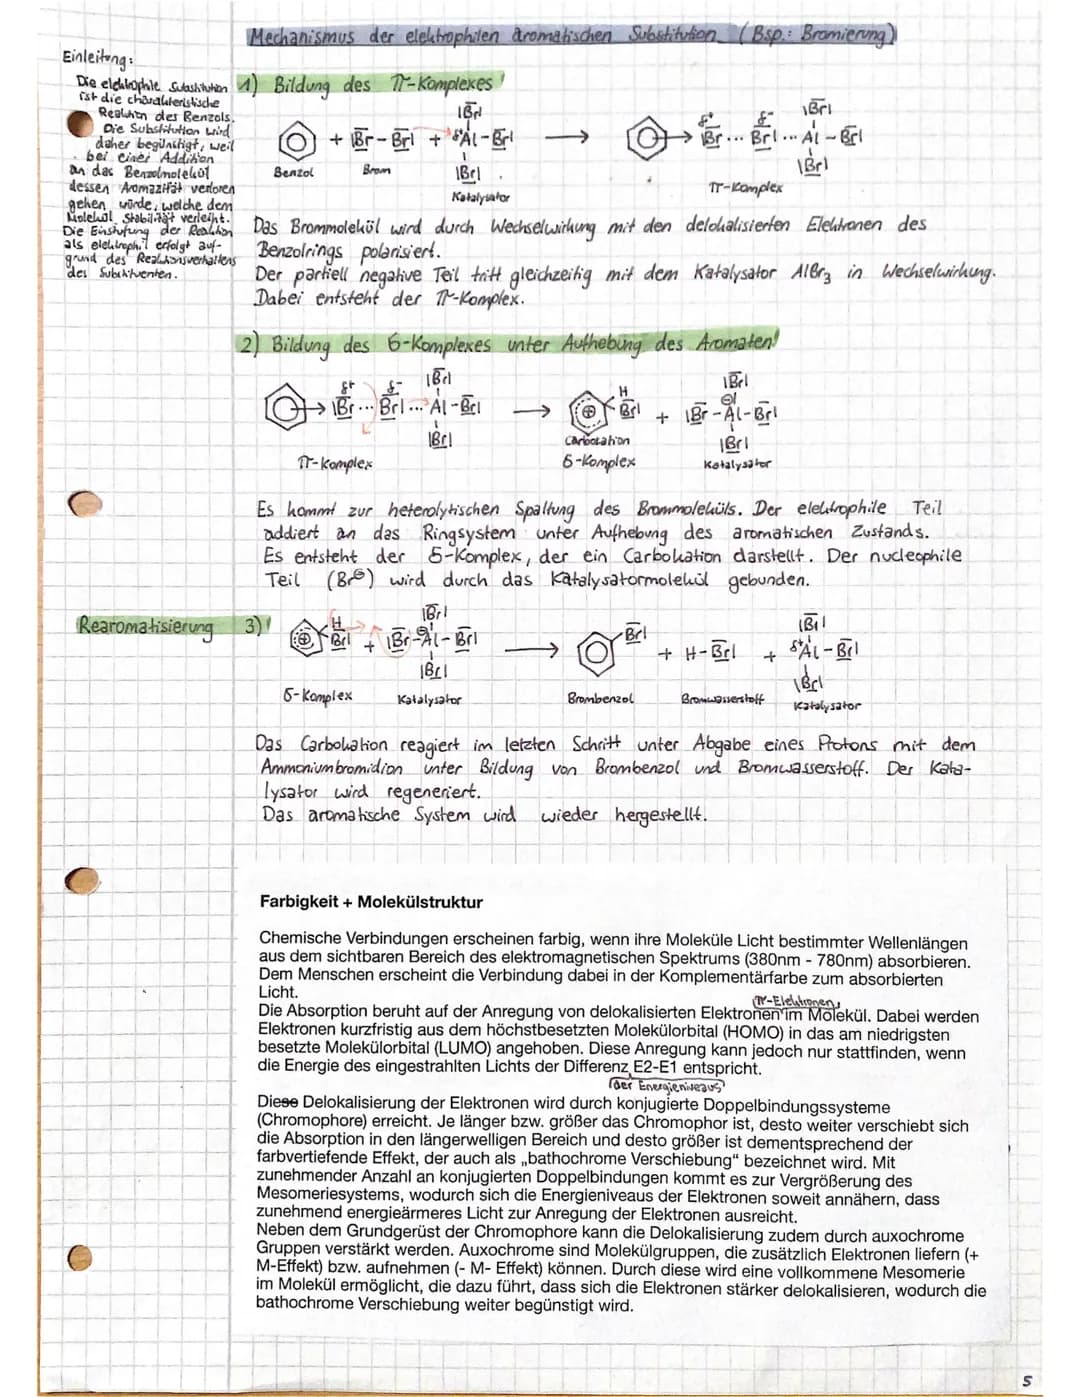 Mechanismus der elektrophilen aromatischen Substitution (Bsp.: Bromierung)
Einleitung:
Die elektrophile Substitution
ist die charakteristische
Reaktion des Benzols.
Die Substitution wird
daher begünstigt, weil
bei einer Addition
an das Benzolmolekül
dessen Aromazität verloren
gehen würde, welche dem
Molekül Stabilität verleiht.
Die Einstufung der Reaktion
als elektrophil erfolgt auf-
grund des Reaktionsverhaltens
des Substituenten.
1) Bildung des π-Komplexes
|Br|
+ |Br - Br| + δ+Al - Br|
|Br|
Benzol
Brom
Katalysator
δ+ δ- |Br|
|Br ... Br| ... Al - Br|
|Br|
π-Komplex
Das Brommolekül wird durch Wechselwirkung mit den delokalisierten Elektronen des
Benzolrings polarisiert.
Der partiell negative Teil tritt gleichzeitig mit dem Katalysator AlBr₃ in Wechselwirkung.
Dabei entsteht der π-Komplex.
2) Bildung des б-Komplexes unter Aufhebung des Aromaten
δ+ δ- |Br|
|Br ... Br| ... Al - Br|
|Br|
π-Komplex
H
⊕ Br|
Carbokation
б-Komplex
+
|Br|
⊖|
|Br - Al - Br|
|Br|
Katalysator
Es kommt zur heterolytischen Spaltung des Brommoleküls. Der elektrophile Teil
addiert an das Ringsystem unter Aufhebung des aromatischen Zustands.
Es entsteht der б-Komplex, der ein Carbokation darstellt. Der nucleophile
Teil (Br⊖) wird durch das Katalysatormolekül gebunden.
Rearomatisierung 3)
H
⊕ Br|
+
|Br|
⊖|
|Br - Al - Br|
|Br|
б-Komplex
Katalysator
Br|
+ H - Br| +
|Br|
δ+Al - Br|
|Br|
Brombenzol
Bromwasserstoff
Katalysator
Das Carbokation reagiert im letzten Schritt unter Abgabe eines Protons mit dem
Ammoniumbromidion unter Bildung von Brombenzol und Bromwasserstoff. Der Kata-
lysator wird regeneriert.
Das aromatische System wird wieder hergestellt.
Farbigkeit + Molekülstruktur
Chemische Verbindungen erscheinen farbig, wenn ihre Moleküle Licht bestimmter Wellenlängen
aus dem sichtbaren Bereich des elektromagnetischen Spektrums (380nm - 780nm) absorbieren.
Dem Menschen erscheint die Verbindung dabei in der Komplementärfarbe zum absorbierten
Licht.
(π-Elektronen)
Die Absorption beruht auf der Anregung von delokalisierten Elektronen im Molekül. Dabei werden
Elektronen kurzfristig aus dem höchstbesetzten Molekülorbital (HOMO) in das am niedrigsten
besetzte Molekülorbital (LUMO) angehoben. Diese Anregung kann jedoch nur stattfinden, wenn
die Energie des eingestrahlten Lichts der Differenz E2-E1 entspricht.
der Energieniveaus
Diese Delokalisierung der Elektronen wird durch konjugierte Doppelbindungssysteme
(Chromophore) erreicht. Je länger bzw. größer das Chromophor ist, desto weiter verschiebt sich
die Absorption in den längerwelligen Bereich und desto größer ist dementsprechend der
farbvertiefende Effekt, der auch als „bathochrome Verschiebung“ bezeichnet wird. Mit
zunehmender Anzahl an konjugierten Doppelbindungen kommt es zur Vergrößerung des
Mesomeriesystems, wodurch sich die Energieniveaus der Elektronen soweit annähern, dass
zunehmend energieärmeres Licht zur Anregung der Elektronen ausreicht.
Neben dem Grundgerüst der Chromophore kann die Delokalisierung zudem durch auxochrome
Gruppen verstärkt werden. Auxochrome sind Molekülgruppen, die zusätzlich Elektronen liefern (+
M-Effekt) bzw. aufnehmen (- M- Effekt) können. Durch diese wird eine vollkommene Mesomerie
im Molekül ermöglicht, die dazu führt, dass sich die Elektronen stärker delokalisieren, wodurch die
bathochrome Verschiebung weiter begünstigt wird.
5